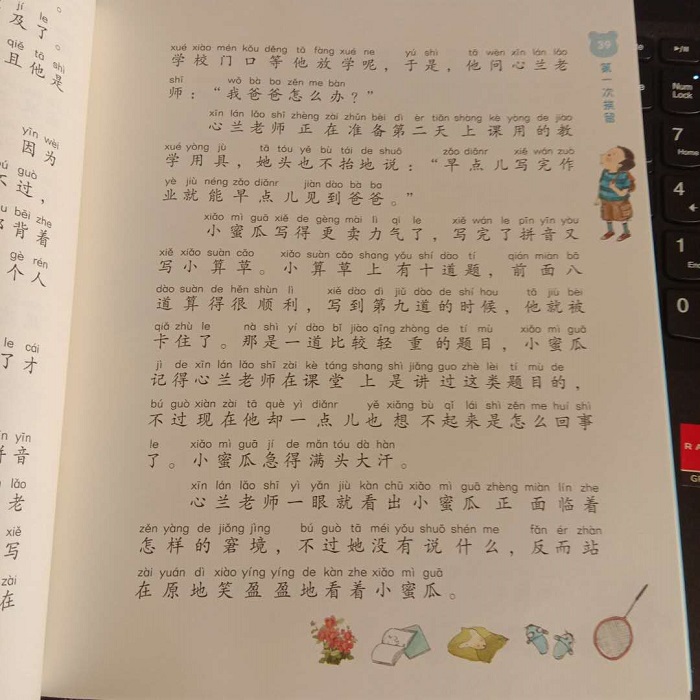 jí le
及了。
qiě tā shì
且他是
yīn wèi
因为
bú guò
不过，
bēi zhe
背着
gè rén
个人
le cái
了才
pīn yīn
拼音
lǎo
老
xiě
写
zài
在
xué xiào mén kǒu děng tā fàng xué ne yú shì tā wèn xīn lán lǎo
学校门口等他放学呢，于是，他问心兰老
shī wǒ bà ba zěn me bàn
师：“我爸爸怎么办？”
xīn lán lǎo shī zhèng zài zhǔn bèi dì èr tiān shàng kè yòng de jiào
心兰老师正在准备第二天上课用的教
xué yòng jù tā tóu yě bù tái de shuō zǎo diǎnr xiě wán zuò
学用具，她头也不抬地说：“早点儿写完作
yè jiù néng zǎo diǎnr jiàn dào bà ba
业就能早点儿见到爸爸。”
xiǎo mì guā xiě de gèng mài lì qi le xiě wán le pīn yīn yòu
小蜜瓜写得更卖力气了，写完了拼音又
xiě xiǎo suàn cǎo xiǎo suàn cǎo shang yǒu shí dào tí qián miàn bā
写小算草。小算草上有十道题，前面八
dào suàn de hěn shùn lì xiě dào dì jiǔ dào de shí hou tā jiù bèi
道算得很顺利，写到第九道的时候，他就被
qiǎ zhù le nà shì yí dào bǐ jiào qīng zhòng de tí mù xiǎo mì guā
卡住了。那是一道比较轻重的题目，小蜜瓜
jì de xīn lán lǎo shī zài kè táng shang shì jiǎng guo zhè lèi tí mù de
记得心兰老师在课堂上是讲过这类题目的，
bú guò xiàn zài tā què yì diǎnr yě xiǎng bù qǐ lái shì zěn me huí shì
不过现在他却一点儿也想不起来是怎么回事
le xiǎo mì guā jí de mǎn tóu dà hàn
了。小蜜瓜急得满头大汗。
xīn lán lǎo shī yì yǎn jiù kàn chū xiǎo mì guā zhèng miàn lín zhe
心兰老师一眼就看出小蜜瓜正面临着
zěn yàng de jiǒng jìng bú guò tā méi yǒu shuō shén me fǎn ér zhàn
怎样的窘境，不过她没有说什么，反而站
zài yuán dì xiào yíng yíng de kàn zhe xiǎo mì guā
在原地笑盈盈地看着小蜜瓜。
39
第一次
Num
Lock
7
Home
4
1
0